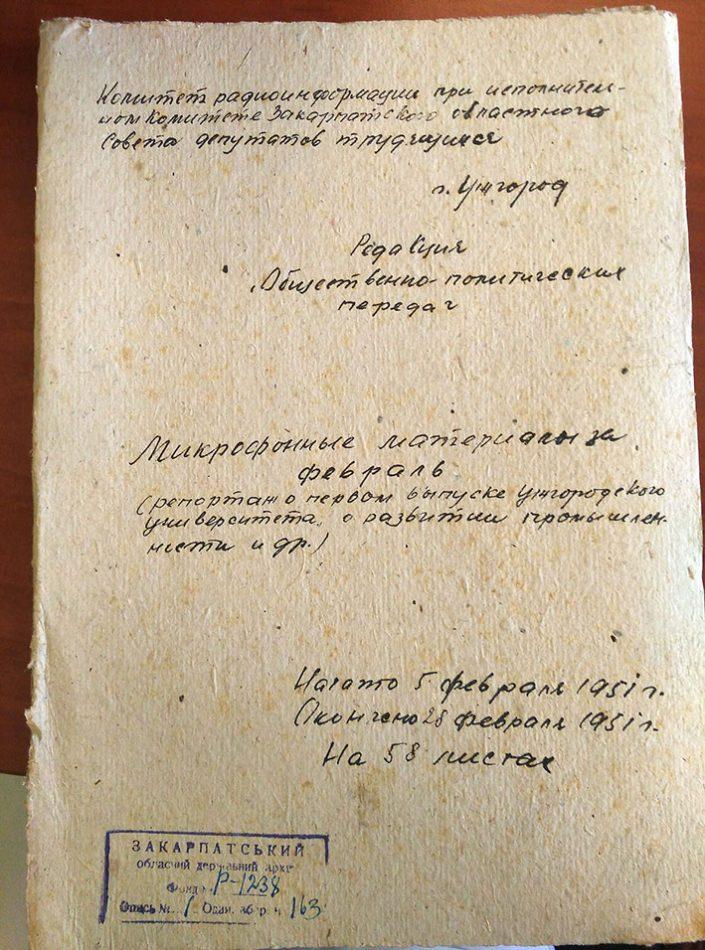 Комитет радиоинформации при исполнитель-
ном комитете Закарпатского областного
Совета депутатов трудящихся
г. Ужгород
Редакция
Общественно-политических
передач
Микрофонные материалы за
февраль
(репортаж о первом выпуске Ужгородского
университета, о развитии промышлен-
ности и др.)
Начато 5 февраля 1951 г.
Окончено 28 февраля 1951 г.
На 58 листах
ЗАКАРПАТСЬКИЙ
обласний державний архів
Фонд Р-1238
Опись № 1 Один. зб р. ч 163